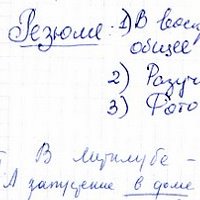 Резюме: 1) В
общее
2) Разуч
3) Фото
В Митилубе -
А запущение в доме